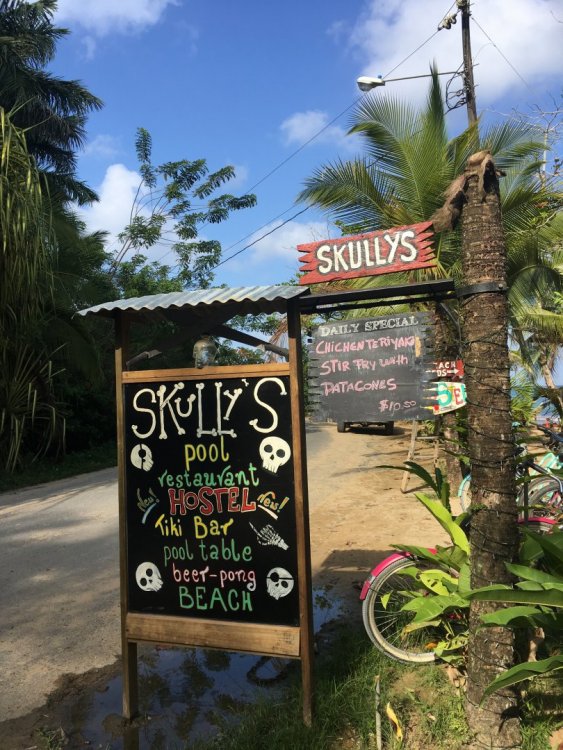 SKULLYS
DAILY SPECIAL
CHICHEN TERIYAKI
STIR FRY WITH
PATACONES
$10.50
SKULLY'S
pool
restaurant
New! HOSTEL New!
Tiki Bar
pool table
beer-pong
BEACH